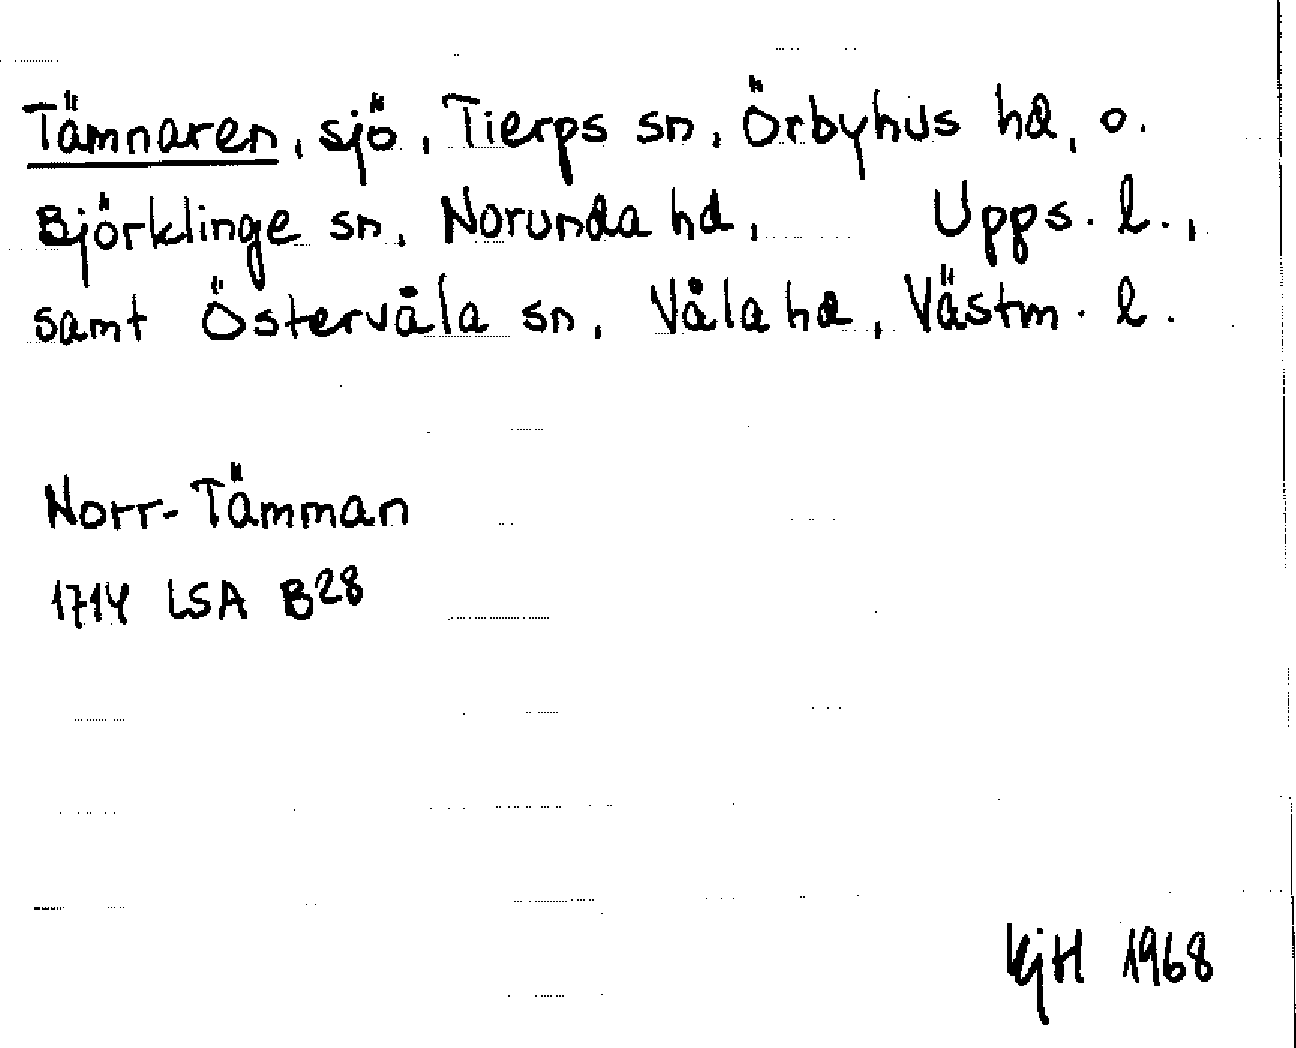 Tämnaren, sjö, Tierps sn, Örbyhus hd, o.
Björklinge sn, Norunda hd, Upps. l.,
samt Östervåla sn, Våla hd, Västm. l.
Norr-Tämman
1714 LSA B28
KjH 1968